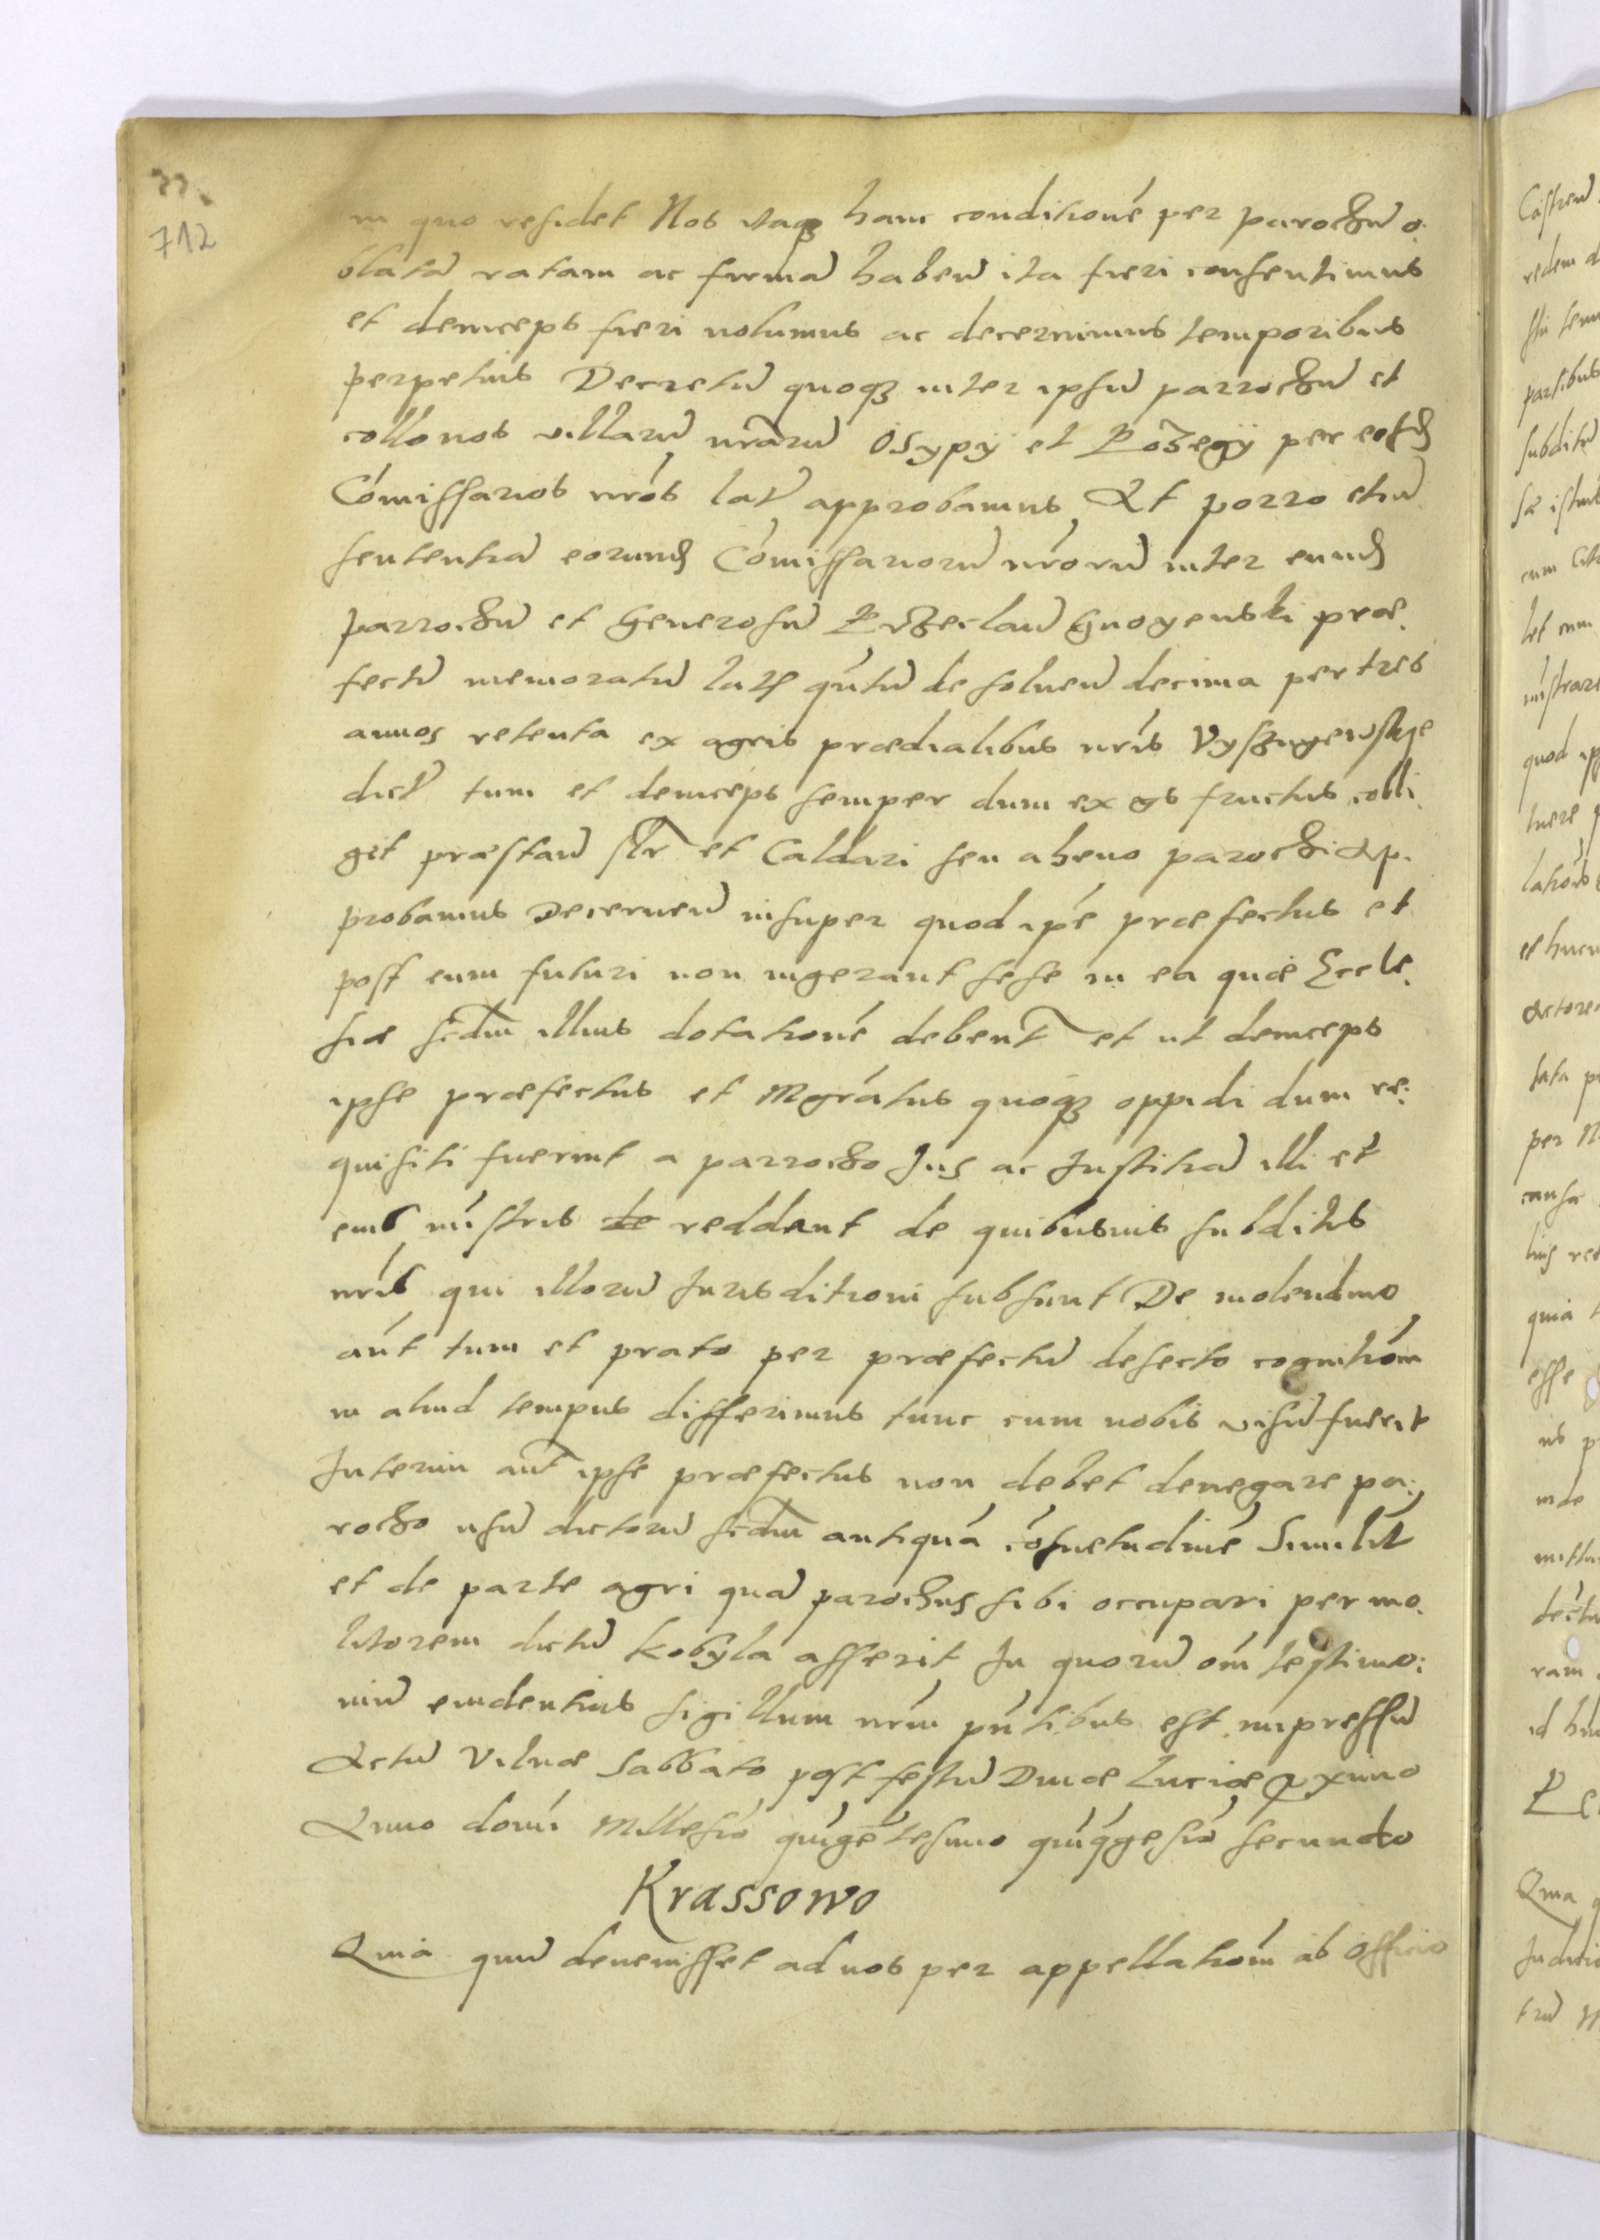 33.
712
in quo residet Nos itaq3 hanc conditioné per parochũ o:
blatã ratam ac firmã habeñ ita fieri consentimus
et deinceps fieri volumus ac decernimus temporibus
perpetuis Decretũ quoq3 inter ipsũ parrochũ et
collonos villarũ nrãrũ Osypÿ et Rożegÿ per eosd
Cómissarios nrós lat approbamus Et porro etiã
sententiã eorund Cómissariorũ nrórũ inter eund
parrochũ et Generosũ Przeclaũ Gnoyenski præ,
fectũ memoratũ lat qũtũ de solueñ decima per tres
annos retenta ex agris prædialibus nrís Vyszngewskye
dict tum et deinceps semper dum ex gs fructus colli,
get præstañ et Caldari seu aheno parochi Ap,
probamus Decerneñ insuper quod ipé præfectus et
post eum futuri non ingerant sese in ea quæ Eccle,
siæ scdm illius dotationé debent et ut deinceps
ipse præfectus et Mgrátus quoq3 oppidi dum re:
quisiti fuerint a parrocho Jus ac Justitiã illi et
eius mistris de reddant de quibusuis subditis
nrís qui illorũ Jurisditioni subsunt De molendino
aút tum et prato per præfectũ desecto cognitióm
in aliud tempus differimus tunc cum nobis visũ fuerit
Interim aút ipse præfectus non debet denegare pa:
rocho usũ dictorũ scdm antiquá cósuetudiné Similit
et de parte agri quã parochus sibi occupari per mo,
litorem dictũ Kobyla asserit In quorũ óm testimo:
niũ euidentius sigillum nrm pntibus est impressũ
Actũ Vilnæ Sabbato post festũ Diuæ Luciæ pximo
Anno domí Millesió quigẽtesimo quiqgesió secundo
Krassowo
Quia quũ deuenisset ad nos per appellatióm ab officio